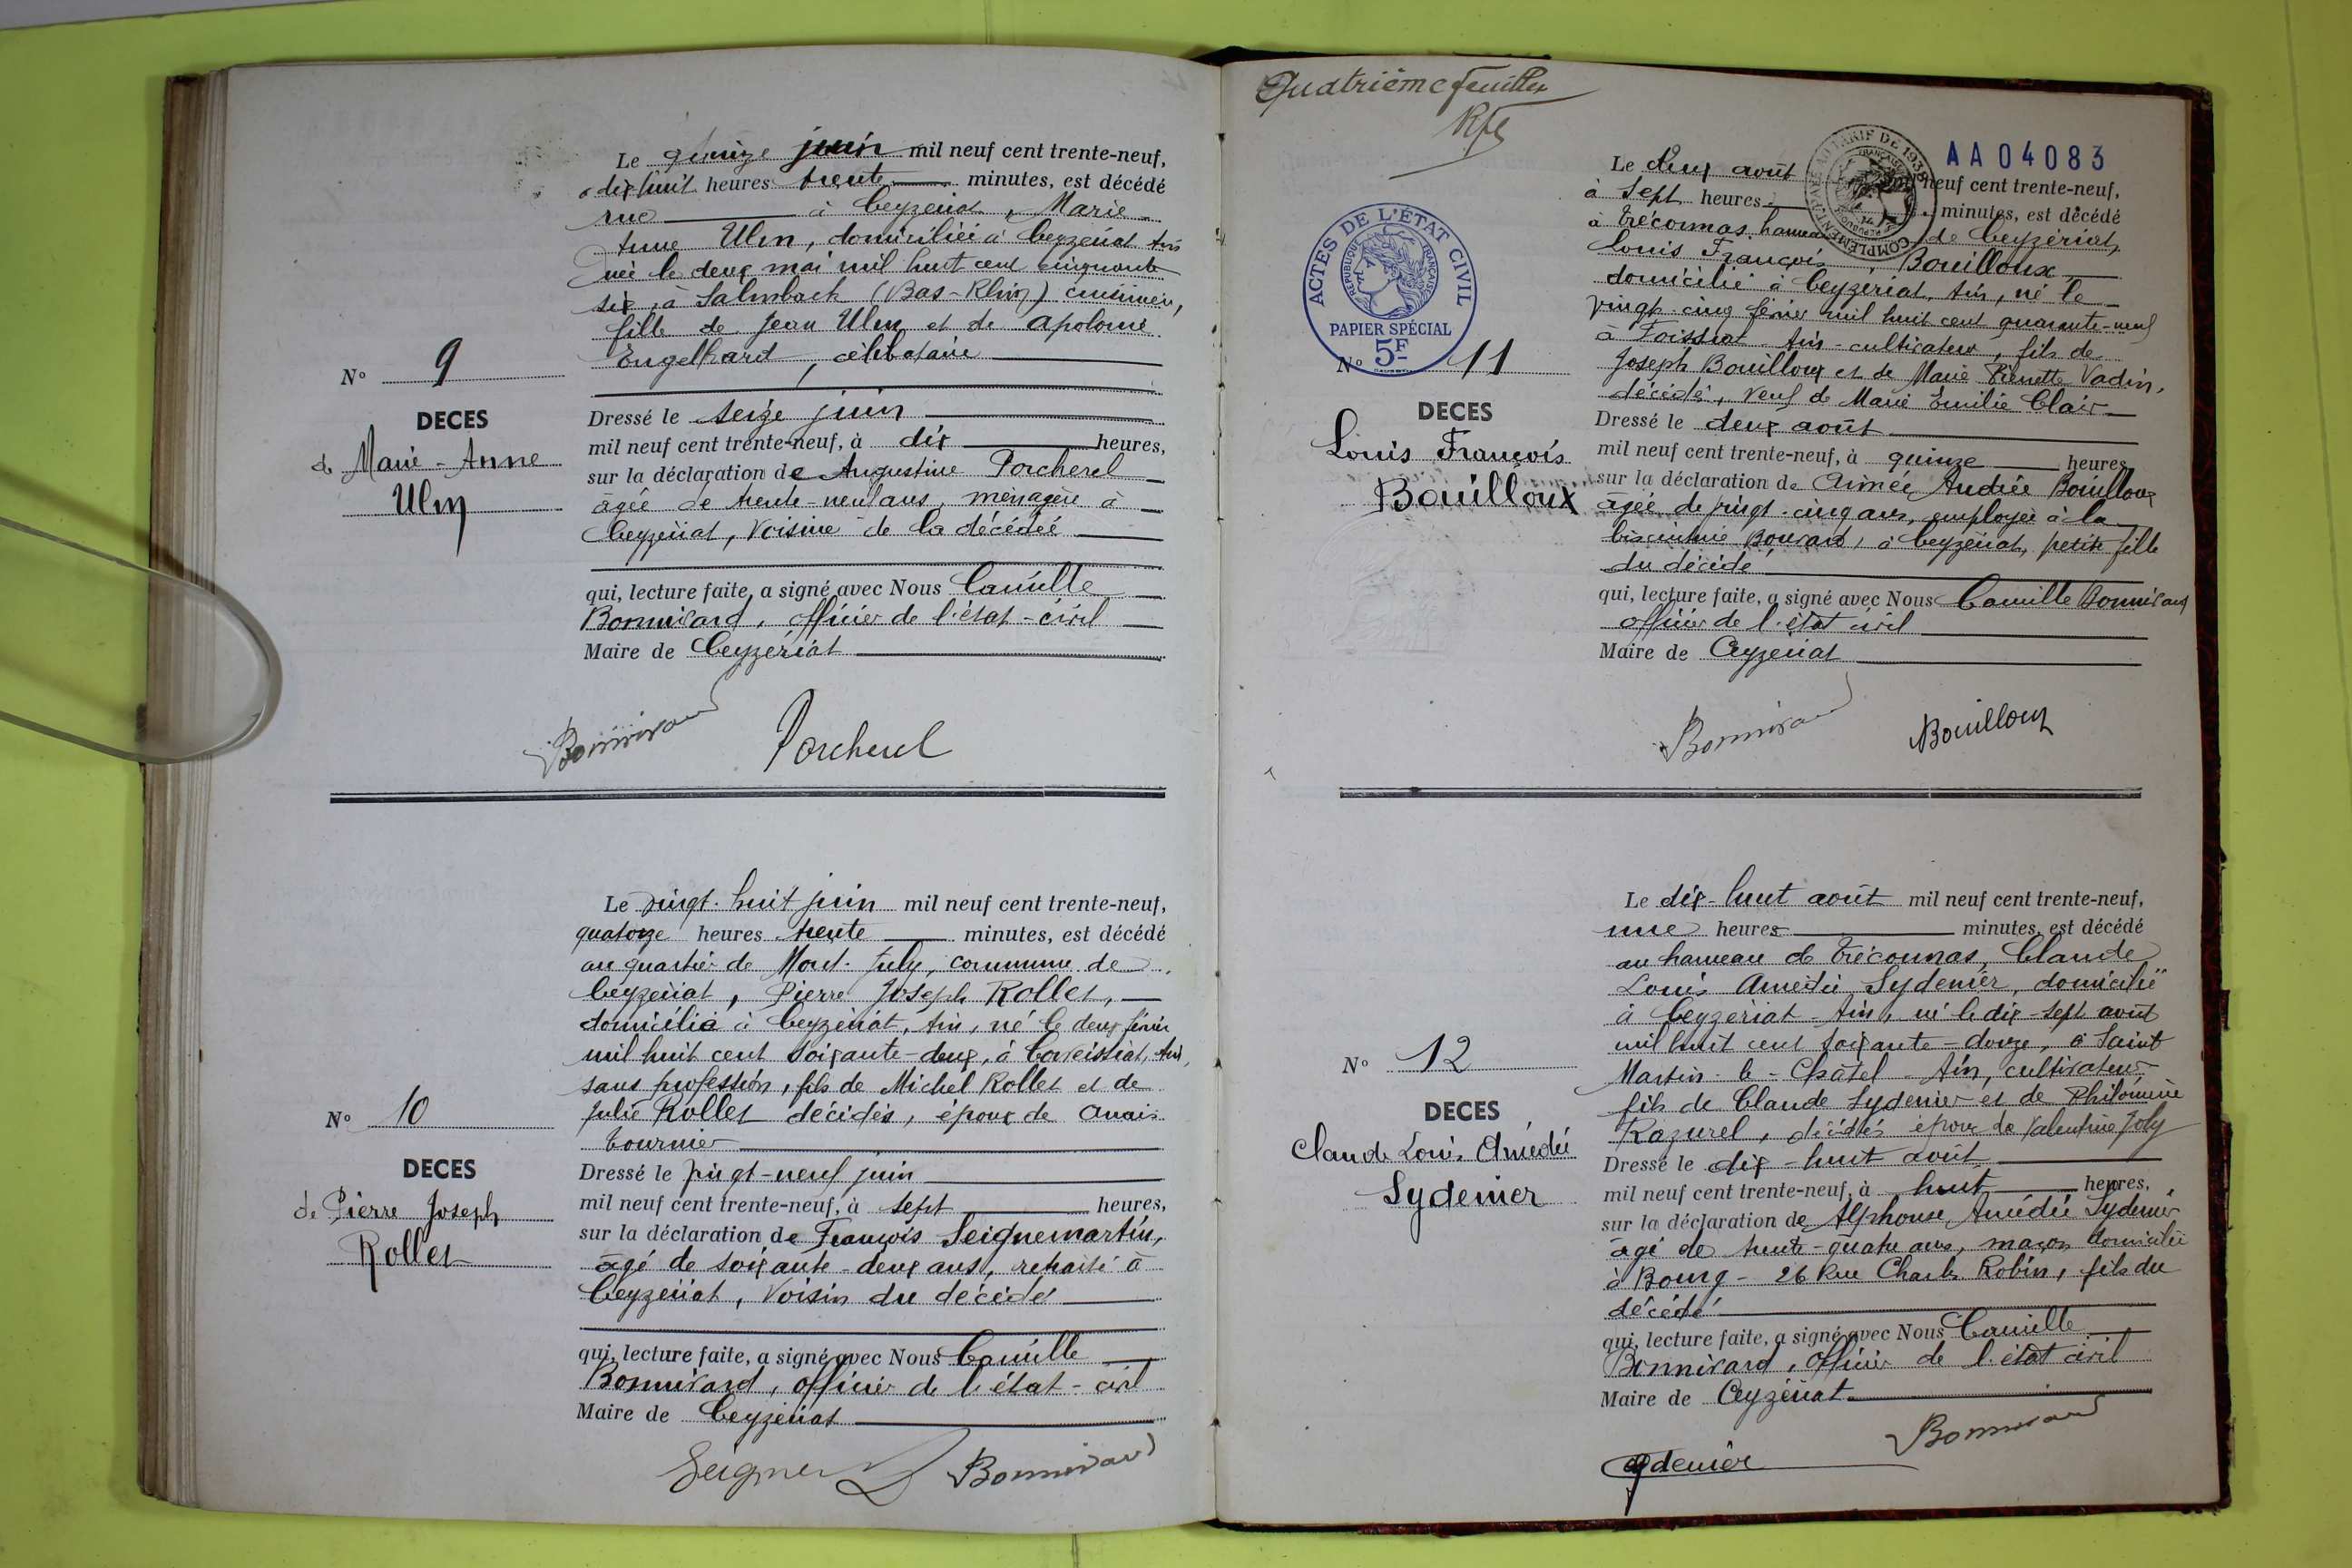 Le quinze juin mil neuf cent trente-neuf,
à dix huit heures trente minutes, est décédé
rue à Ceyzériat, Marie
Anne Ulm, domiciliée à Ceyzériat Ain
née le deux mai mil huit cent cinquante
six, à Salmbach (Bas-Rhin) cuisinière,
fille de Jean Ulm et de Apolonie
Engelhard, célibataire
N° 9
DECES
de Marie-Anne
Ulm
Dressé le seize juin
mil neuf cent trente-neuf, à dix heures,
sur la déclaration de Augustine Porcherel
âgée de trente-neuf ans, ménagère à
Ceyzériat, voisine de la décédée
qui, lecture faite, a signé avec Nous Camille
Bonnivard, officier de l'état-civil
Maire de Ceyzériat
Bonnivard Porcherel
Le vingt-huit juin mil neuf cent trente-neuf,
quatorze heures trente minutes, est décédé
au quartier de Mont-July, commune de
Ceyzériat, Pierre Joseph Rollet,
domicilié à Ceyzériat, Ain, né le deux février
mil huit cent soixante-deux, à Corveissiat, Ain,
sans profession, fils de Michel Rollet et de
Julie Rollet décédés, époux de Anaïs
Tournier
N° 10
DECES
de Pierre Joseph
Rollet
Dressé le vingt-neuf juin
mil neuf cent trente-neuf, à sept heures,
sur la déclaration de François Seignemartin,
âgé de soixante-deux ans, retraité à
Ceyzériat, voisin du décédé
qui, lecture faite, a signé avec Nous Camille
Bonnivard, officier de l'état-civil
Maire de Ceyzériat
Bonnivard
Quatrième feuillet
AA04083
Le deux août mil neuf cent trente-neuf,
à sept heures minutes, est décédé
à Trécounas, hameau de Ceyzériat,
Louis François Bouilloux
domicilié à Ceyzériat, Ain, né le
vingt-cinq février mil huit cent quarante-neuf
à Foissiat Ain-cultivateur, fils de
Joseph Bouilloux et de Marie Pierrette Vadin,
décédés, veuf de Marie Emilie Clair
ACTES DE L'ÉTAT CIVIL
RÉPUBLIQUE FRANÇAISE
PAPIER SPÉCIAL
5F
N° 11
DECES
Louis François
Bouilloux
Dressé le deux août
mil neuf cent trente-neuf, à quinze heures,
sur la déclaration de Aimée Andrée Bouilloux
âgée de vingt-cinq ans, employée à la
biscuiterie Bouvard, à Ceyzériat, petite fille
du décédé
qui, lecture faite, a signé avec Nous Camille Bonnivard
officier de l'état civil
Maire de Ceyzériat
Bonnivard Bouilloux
Le dix-huit août mil neuf cent trente-neuf,
une heures minutes, est décédé
au hameau de Trécounas, Claude
Louis Amédée Sydenier, domicilié
à Ceyzériat-Ain, né le dix-sept août
mil huit cent soixante-douze, à Saint
Martin-le-Châtel Ain, cultivateur
fils de Claude Sydenier et de Philomène
Razurel, décédés époux de Valentine Joly
N° 12
DECES
Claude Louis Amédée
Sydenier
Dressé le dix-huit août
mil neuf cent trente-neuf, à huit heures,
sur la déclaration de Alphonse Amédée Sydenier
âgé de trente-quatre ans, maçon domicilié
à Bourg-26 Rue Charles Robin, fils du
décédé
qui, lecture faite, a signé avec Nous Camille
Bonnivard, officier de l'état civil
Maire de Ceyzériat
Bonnivard